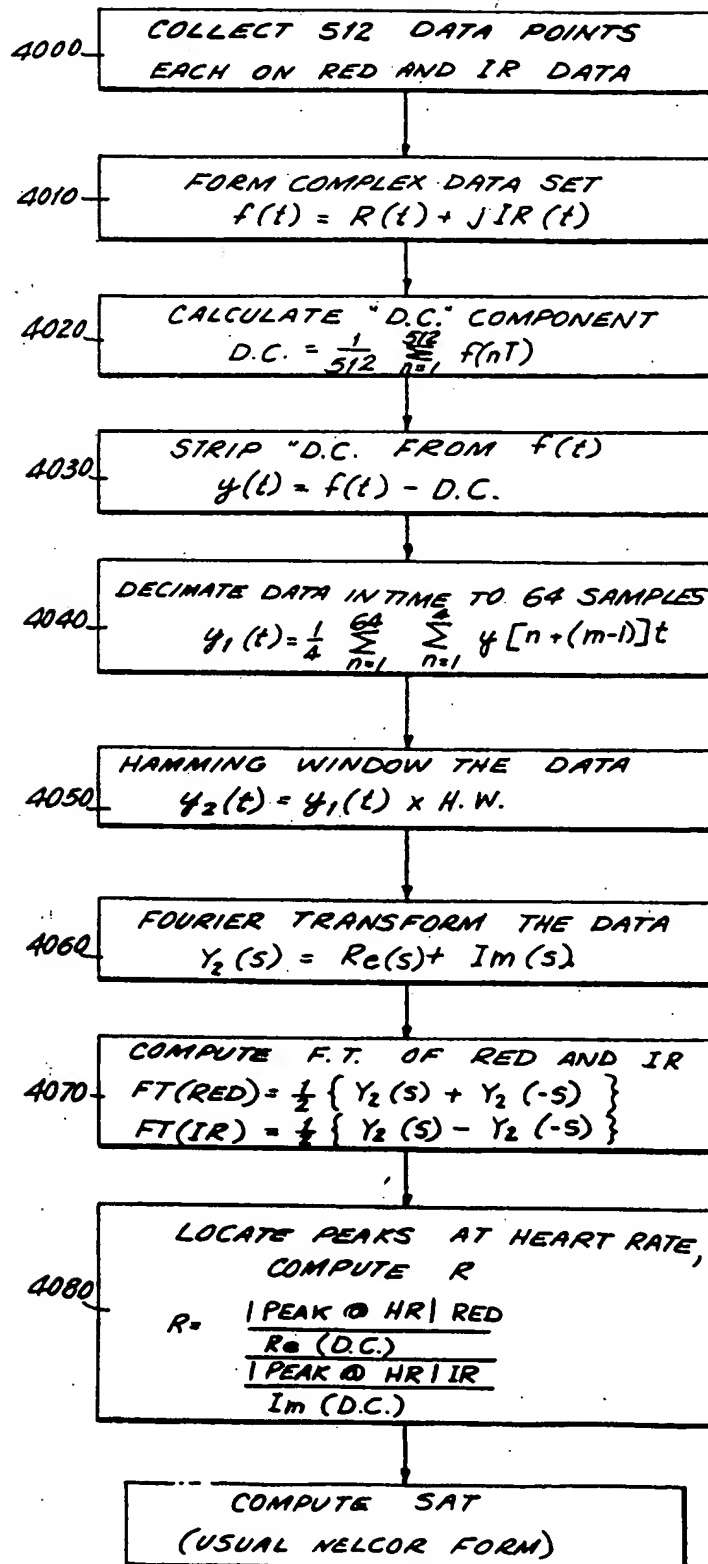 4000
COLLECT 512 DATA POINTS
EACH ON RED AND IR DATA
4010
FORM COMPLEX DATA SET
f(t) = R(t) + jIR(t)
4020
CALCULATE "D.C." COMPONENT
D.C. = 1/512 512 Σ n=1 f(nT)
4030
STRIP "D.C. FROM f(t)
y(t) = f(t) - D.C.
4040
DECIMATE DATA IN TIME TO 64 SAMPLES
y₁(t) = 1/4 64 Σ n=1 4 Σ n=1 y[n+(m-1)]t
4050
HAMMING WINDOW THE DATA
y₂(t) = y₁(t) x H.W.
4060
FOURIER TRANSFORM THE DATA
Y₂(s) = Re(s)+ Im(s)
4070
COMPUTE F.T. OF RED AND IR
FT(RED) = 1/2 { Y₂(s) + Y₂(-s) }
FT(IR) = 1/2 { Y₂(s) - Y₂(-s) }
4080
LOCATE PEAKS AT HEART RATE,
COMPUTE R
R= |PEAK @ HR| RED
Re (D.C.)
|PEAK @ HR| IR
Im (D.C.)
COMPUTE SAT
(USUAL NELCOR FORM)